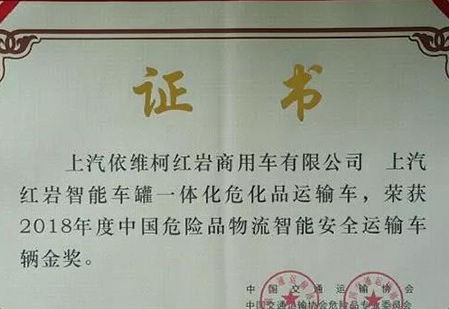 证书
上汽依维柯红岩商用车有限公司 上汽
红岩智能车罐一体化危化品运输车，荣获
2018年度中国危险品物流智能安全运输车
辆金奖。
中国交通运输协会
中国交通运输协会危险品专业委员会